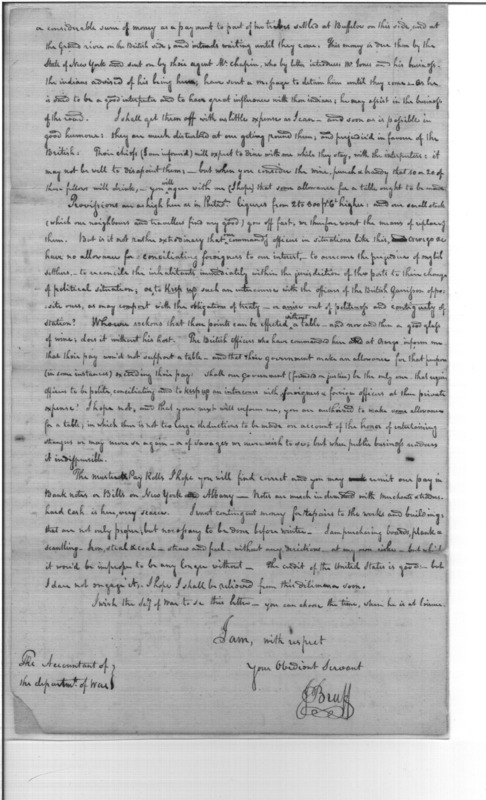 a considerable sum of money as a payment to part of his tribes settled at Buffaloe on this side, and at
the Grand river on the British side; and intends waiting until they come. This money is due them by the
State of New York and sent on by their agent Mr Chapin, who by letter introduces Mr Jones and his business.
the indians advised of his being here, have sent a message to detain him until they come. As he
is said to be a good interpreter and to have great influence with those indians; he may assist in the business
of the road. I shall get them off with as little expense as I can - and soon as is possible in
good humour: they are much disturbed at our getting round them; and prejudic'd in favour of the
British. Their chiefs (I am informed) will expect to dine with me while they stay, with the interpreters: it
may not be well to disapoint them; - but when you consider the wine, punch & brandy that 10 or 20 of
these fellows will drink, - you will agree with me (I hope) that some allowance for a table ought to be made.
Provissions are as high here as in Philada. liquors from 25 to 600 pCt higher: and our small stock
(which our neighbours and travellers find very good) goes off fast, or therefore want the means of replacing
them. But is it not rather extraordinary that commandg officers in situations like this, and
have no allowance for conciliating foreigners to our interest, - to overcome the prejudices of english
settlers, - to reconcile the inhabitants immediately within the jurisdiction of those posts to their change
of political situation; or, to keep up such an intercourse with the officers of the British Garrison oppo-
site ours, as may comport with the obligation of treaty - or arises out of politeness and contiguity of
station? Whoever reckons that these points can be effected, without a table - and now and then a good glass
of wine; does it without his host. The British officers who have commanded here and at Oswego inform me
that their pay would not support a table - and that their government make an allowance for that purpose
(in some instances) exceeding their pay. Shall our Government (founded on justice) be the only one that requires
officers to be polite, conciliating and to keep up an intercourse with foreigners & foreign officers at their private
expense? I hope not, and that your next will inform me, you are authorized to make some allowance
for a table; in which there is not too large deductions to be made on account of the honor of entertaining
strangers we may never see again - or of savages we never wish to see, but when public business renders
it indispensible.
The muster & Pay Rolls I hope you will find correct and you may remit our pay in
Bank notes or Bills on New York or Albany - Notes are much in demand with merchants & traders.
hard cash is here, very scarce. I want contingent money for repairs to the works and buildings
that are not only proper, but necessary to be done before winter. I am purchasing boards, plank &
scantling - Iron, steel & coal - stone and fuel - without any directions - at my own risk - but which
it wou'd be improper to be any longer without - the credit of the United States is good - but
I dare not engage it. I hope I shall be relieved from this dilimma soon.
I wish the Secy of War to see this letter - you can choose the time, when he is at leisure.
I am, with respect
Your Obedient Servant
J Bruff
The Accountant of
the departmt. of War